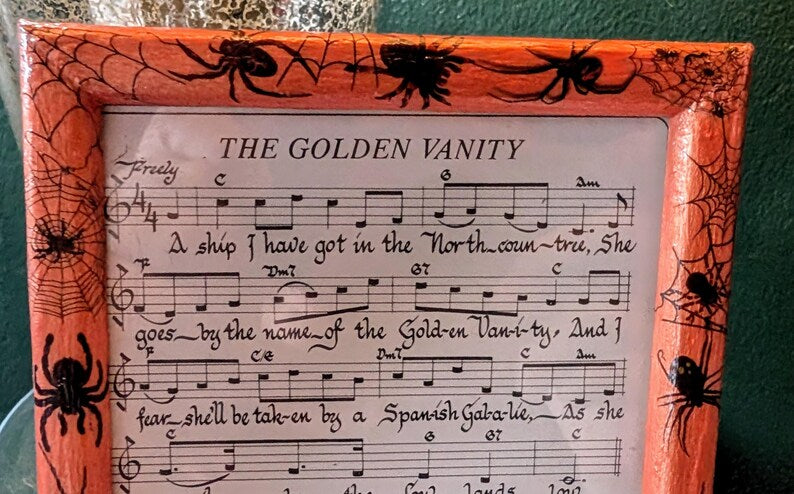 THE GOLDEN VANITY
Freely
C G Am
4 4
A ship I have got in the North-coun-trie, She
F Dm7 G7 C
goes-by the name-of the Gold-en Van-i-ty, And I
F C/E Dm7 C Am
fear-she'll be tak-en by a Span-ish Gal-a-lie,-As she
C G G7 C
the Low lands low